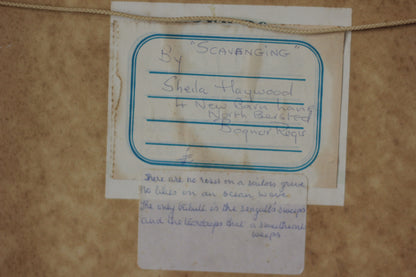 "SCAVANGING"
By
Sheila Haywood
4 New Barn Lane
North Bersted
Bognor Regis
There are no roses on a sailors grave
No lilies on an ocean wave
The only tribute is the seagull's sweeps
and the teardrops that a sweetheart
weeps